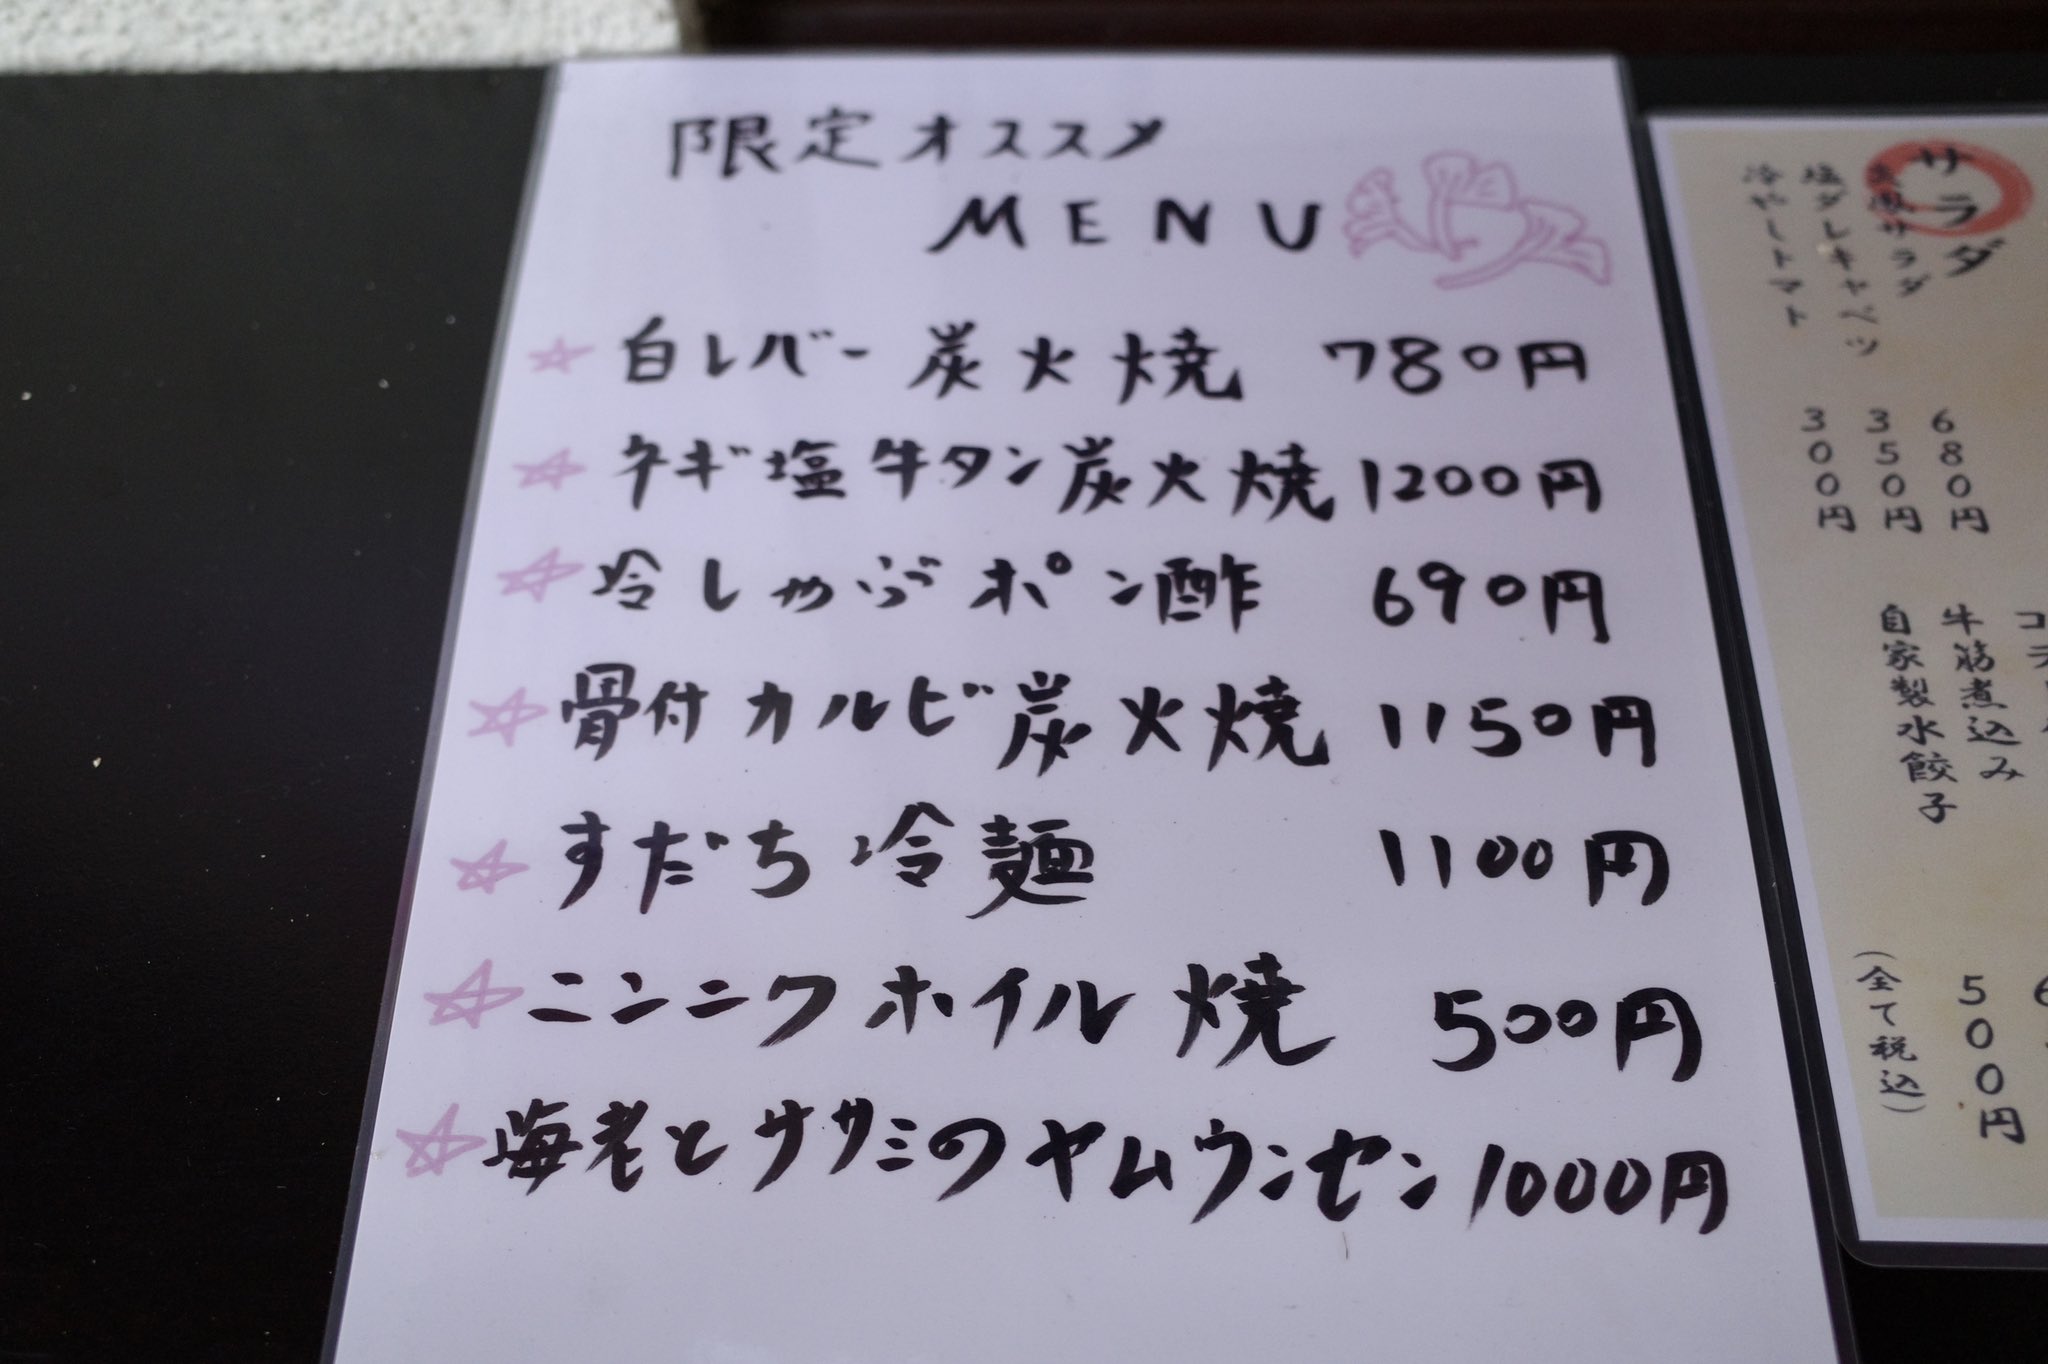 限定オススメ
MENU
☆白レバー炭火焼 780円
☆ネギ塩牛タン炭火焼 1200円
☆冷しゃぶポン酢 690円
☆骨付カルビ炭火焼 1150円
☆すだち冷麺 1100円
☆ニンニクホイル焼 500円
☆海老とササミのヤムウンセン 1000円
サラダ
サラダ 680円
塩ダレキャベツ 350円
冷やしトマト 300円
牛筋煮込み
自家製水餃子 500円
(全て税込)